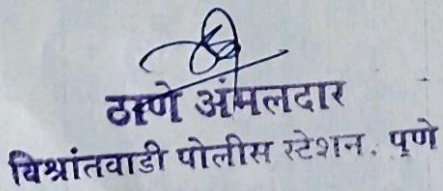 ठाणे अंमलदार
विश्रांतवाडी पोलीस स्टेशन. पुणे